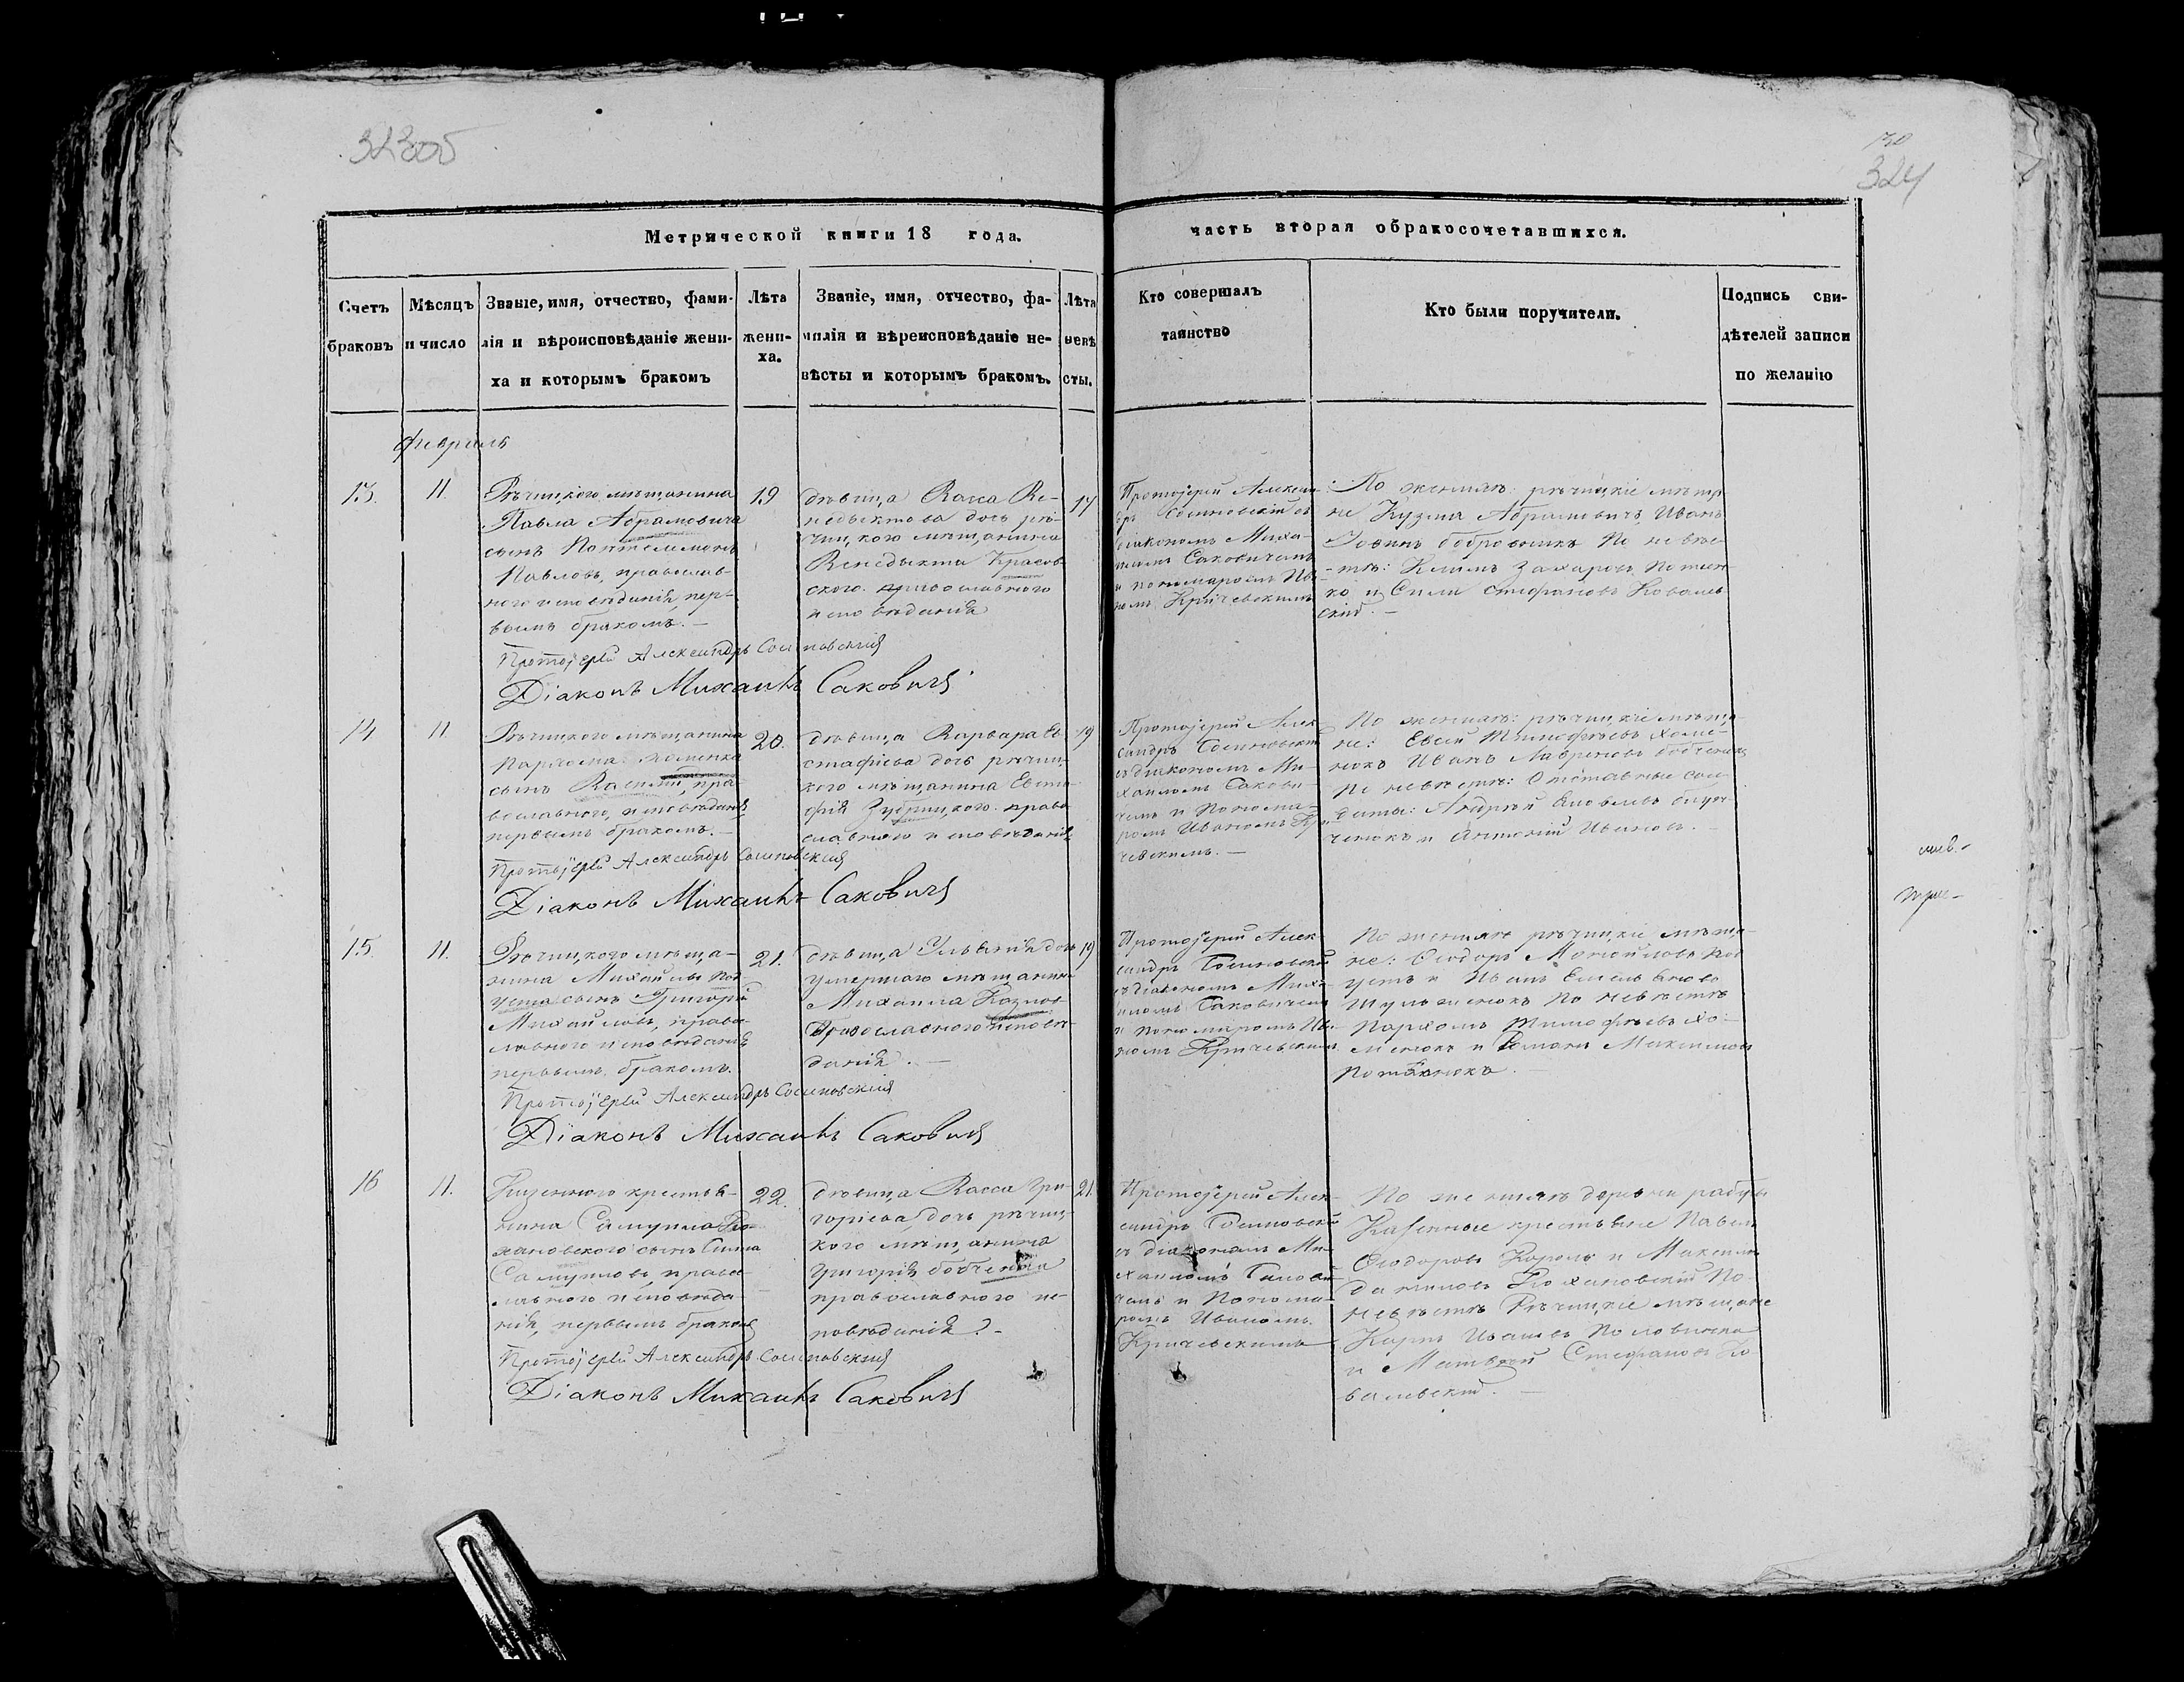 323об
130
324
Метрической книги 18 года.
часть вторая обракосочетавшихся.
Счетъ
браковъ
Мѣсяцъ
и число
Званіе, имя, отчество, фами-
лія и вѣроисповѣданіе жени-
ха и которымъ бракомъ
Лѣта
жени-
ха.
Званіе, имя, отчество, фа-
милія и вѣреисповѣданіе не-
вѣсты и которымъ бракомъ.
Лѣта
невѣ
сты.
Кто совершалъ
таинство
Кто были поручители.
Подпись сви-
дѣтелей записи
по желанію
февраль
13.
11.
Рѣчицкого мѣщанина
Павла Абрамовича
сынъ Пантелимонъ
Павловъ, православ-
ного исповѣданія, пер-
вымъ бракомъ. —
19
дѣвица Васса Ве-
недыктова дочь рѣ-
чицкого мѣщанина
Венедыкта Красов-
ского. православного
исповѣданія
17
Протоіерей Алексан-
дръ Сосиновскій съ
діакономъ Миха-
иломъ Саковичемъ
и пономаремъ Ива-
номъ Кричевскимъ
По женихѣ: рѣчицкіе мѣща
не Кузма Абрамовичъ, Иванъ
бобровникъ По невѣс-
тѣ: Климъ Захаровъ
ко и Стефановъ Ковалев
скій. —
Протоіерей Александръ Сосиновскій
Діаконъ Михаилъ Саковичъ
14
11.
Рѣчицкого мѣщанина
Пархома Хоменка
сынъ Василій, пра-
вославного, исповѣданія,
первымъ бракомъ. —
20.
дѣвица Варвара Ев-
стафіева дочь рѣчиц-
кого мѣщанина Евста-
фія Зубрицкого. право
славного исповѣданія,
19
Протоіерей Алек-
сандръ Сосиновскій
съ діакономъ Ми-
хаиломъ Сакови-
чемъ и Понома-
ремъ Иваномъ Кри-
чевскимъ. —
По женихѣ: рѣчицкіе мѣща-
не: Евсей Тимофѣевъ Хоме-
нокъ Иванъ Лавреновъ бобченокъ
По невѣстѣ: Отставные сол-
даты: Андрей Яковлевъ
ченокъ и Антоній Ивановъ. —
Протоіерей Александръ Сосиновскій
Діаконъ Михаилъ Саковичъ
15.
11.
Рѣчицкого мѣща-
нина Михаилы Коп-
уста сынъ Григорій
Михайловъ, право-
славного исповѣданія
первымъ бракомъ.
21.
дѣвица Ульянія дочь
умершаго мѣщанина
Михаила Козлов-
Православного исповѣ-
данія. —
19
Протоіерей Алек-
сандръ Сосиновскій
съ діакономъ Миха-
иломъ Саковичемъ
и пономаремъ Ива-
номъ Кричевскимъ
По женихѣ рѣчицкіе мѣща-
не: Ѳеодоръ Мануйловъ Коп
устъ и Иванъ Емельяновъ
По невѣстѣ
Пархомъ Тимофѣевъ Хо-
менокъ и Романъ Максимовъ
Потапенокъ. —
Протоіерей Александръ Сосиновскій
Діаконъ Михаилъ Саковичъ
16
11.
Казенного крестья-
нина Самуила Ко-
хановского сынъ Симъ
Самуиловъ, право-
славного исповѣда-
нія, первымъ бракомъ
22.
дѣвица Васса Гри-
горіева дочь рѣчиц-
кого мѣщанина
Григорія бобченка
православного ис-
повѣданія. —
21.
Протоіерей Алек-
сандръ Сосиновскій
съ діакономъ Ми-
хаиломъ Сакови-
чемъ и Понома-
ремъ Иваномъ
Кричевскимъ
По женихѣ деревни
Казенные крестьяне Павелъ
Ѳеодоровъ Король и Максимъ
Даниловъ Кохановскій По
невѣстѣ Рѣчицкіе мѣщане
Карпъ Ивановъ Половинка
и Матвей Стефановъ Ко
валевскій. —
Протоіерей Александръ Сосиновскій
Діаконъ Михаилъ Саковичъ